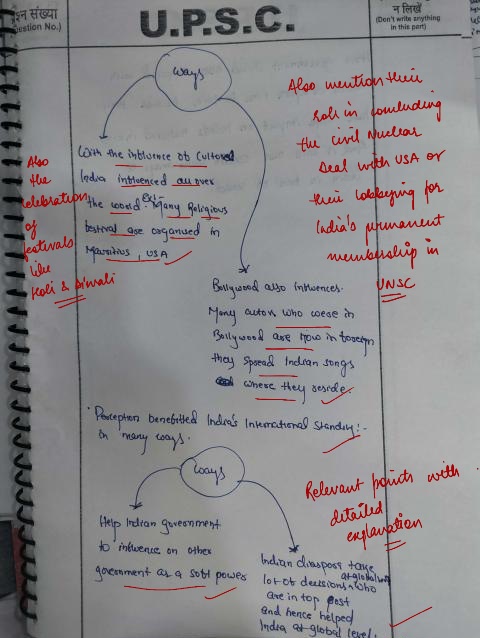 श्न संख्या
estion No.)
U.P.S.C.
न लिखें
(Don't write anything
in this part)
ways
With the influence of Cultured
India influenced all over
the world. Ex:- Many Religious
festival are organised in
Mauritius, USA
Also
the
celebration
of
festivals
like
Holi & Diwali
Also mention their
role in concluding
the civil Nuclear
Deal with USA or
their lobbying for
India's permanent
membership in
UNSC
Bollywood also influences.
Many actors who were in
Bollywood are now in foreign
they spread Indian songs
where they reside.
Perception benefitted India's International Standing:-
in many ways.
ways
Relevant points with
detailed
explanation
Help Indian government
to influence on other
government as a soft power
Indian diaspora take
lot of decisions at global level who
are in top post
and hence helped
India at global level.